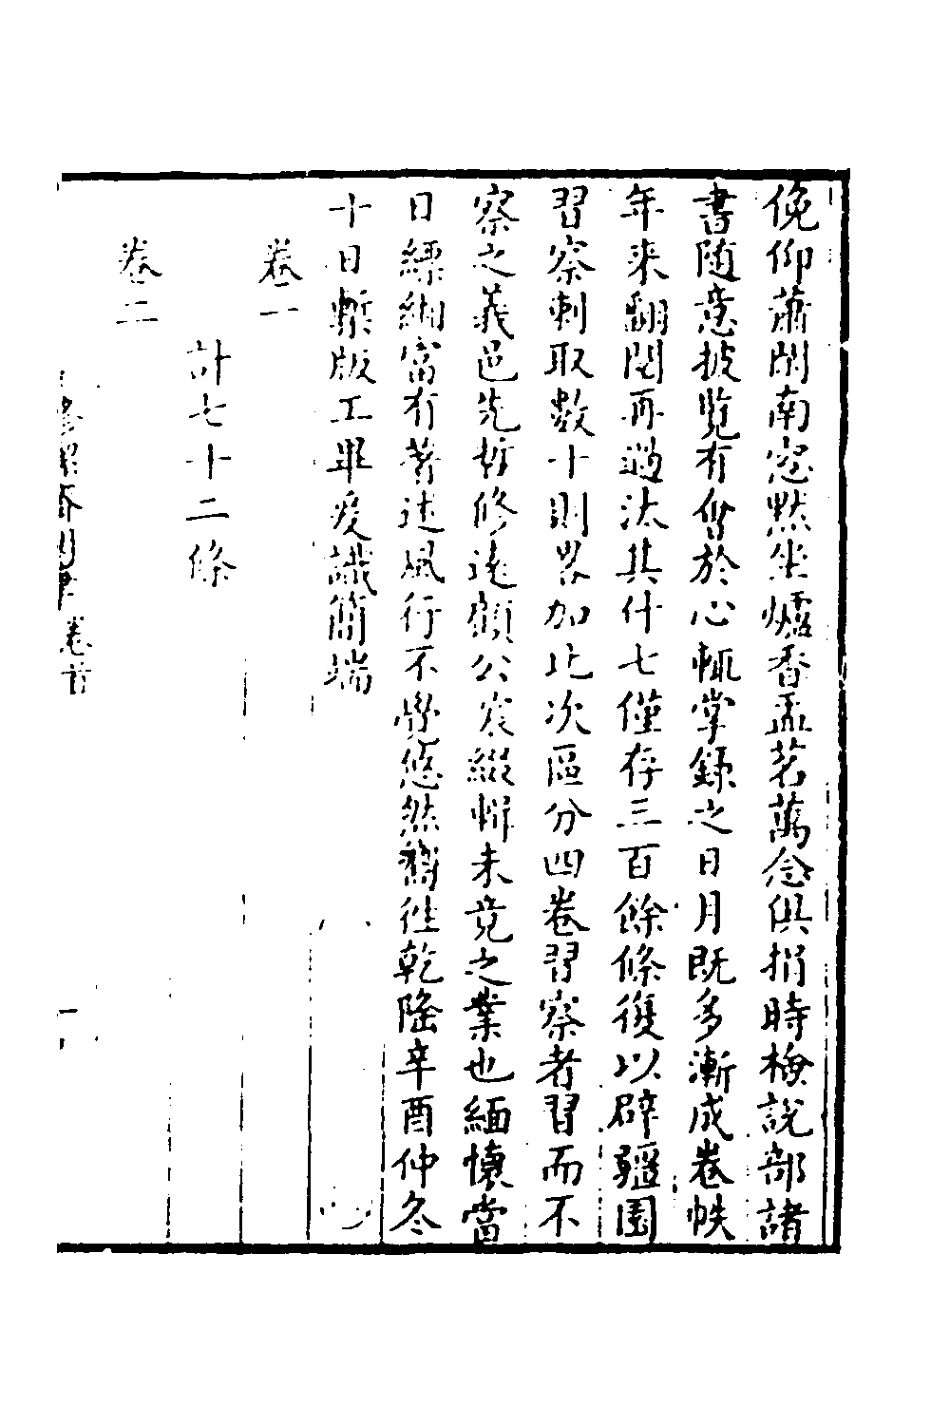 俛仰蕭閒南窓黙坐爐香盂茗萬念俱捐時檢說部諸
書随意披覧有會於心輙掌錄之日月既多漸成卷帙
年来翻閱再過汰其什七僅存三百餘條復以辟疆園
習察刺取數十則畧加比次區分四卷習察者習而不
察之義邑先哲修遠顧公裒綴輯未竟之業也緬懷當
日縹緗富有著述風行不覺悠然嚮徃乾隆辛酉仲冬
十日槧版工畢爰識簡端
卷一
計七十二條
卷二
卷首
一